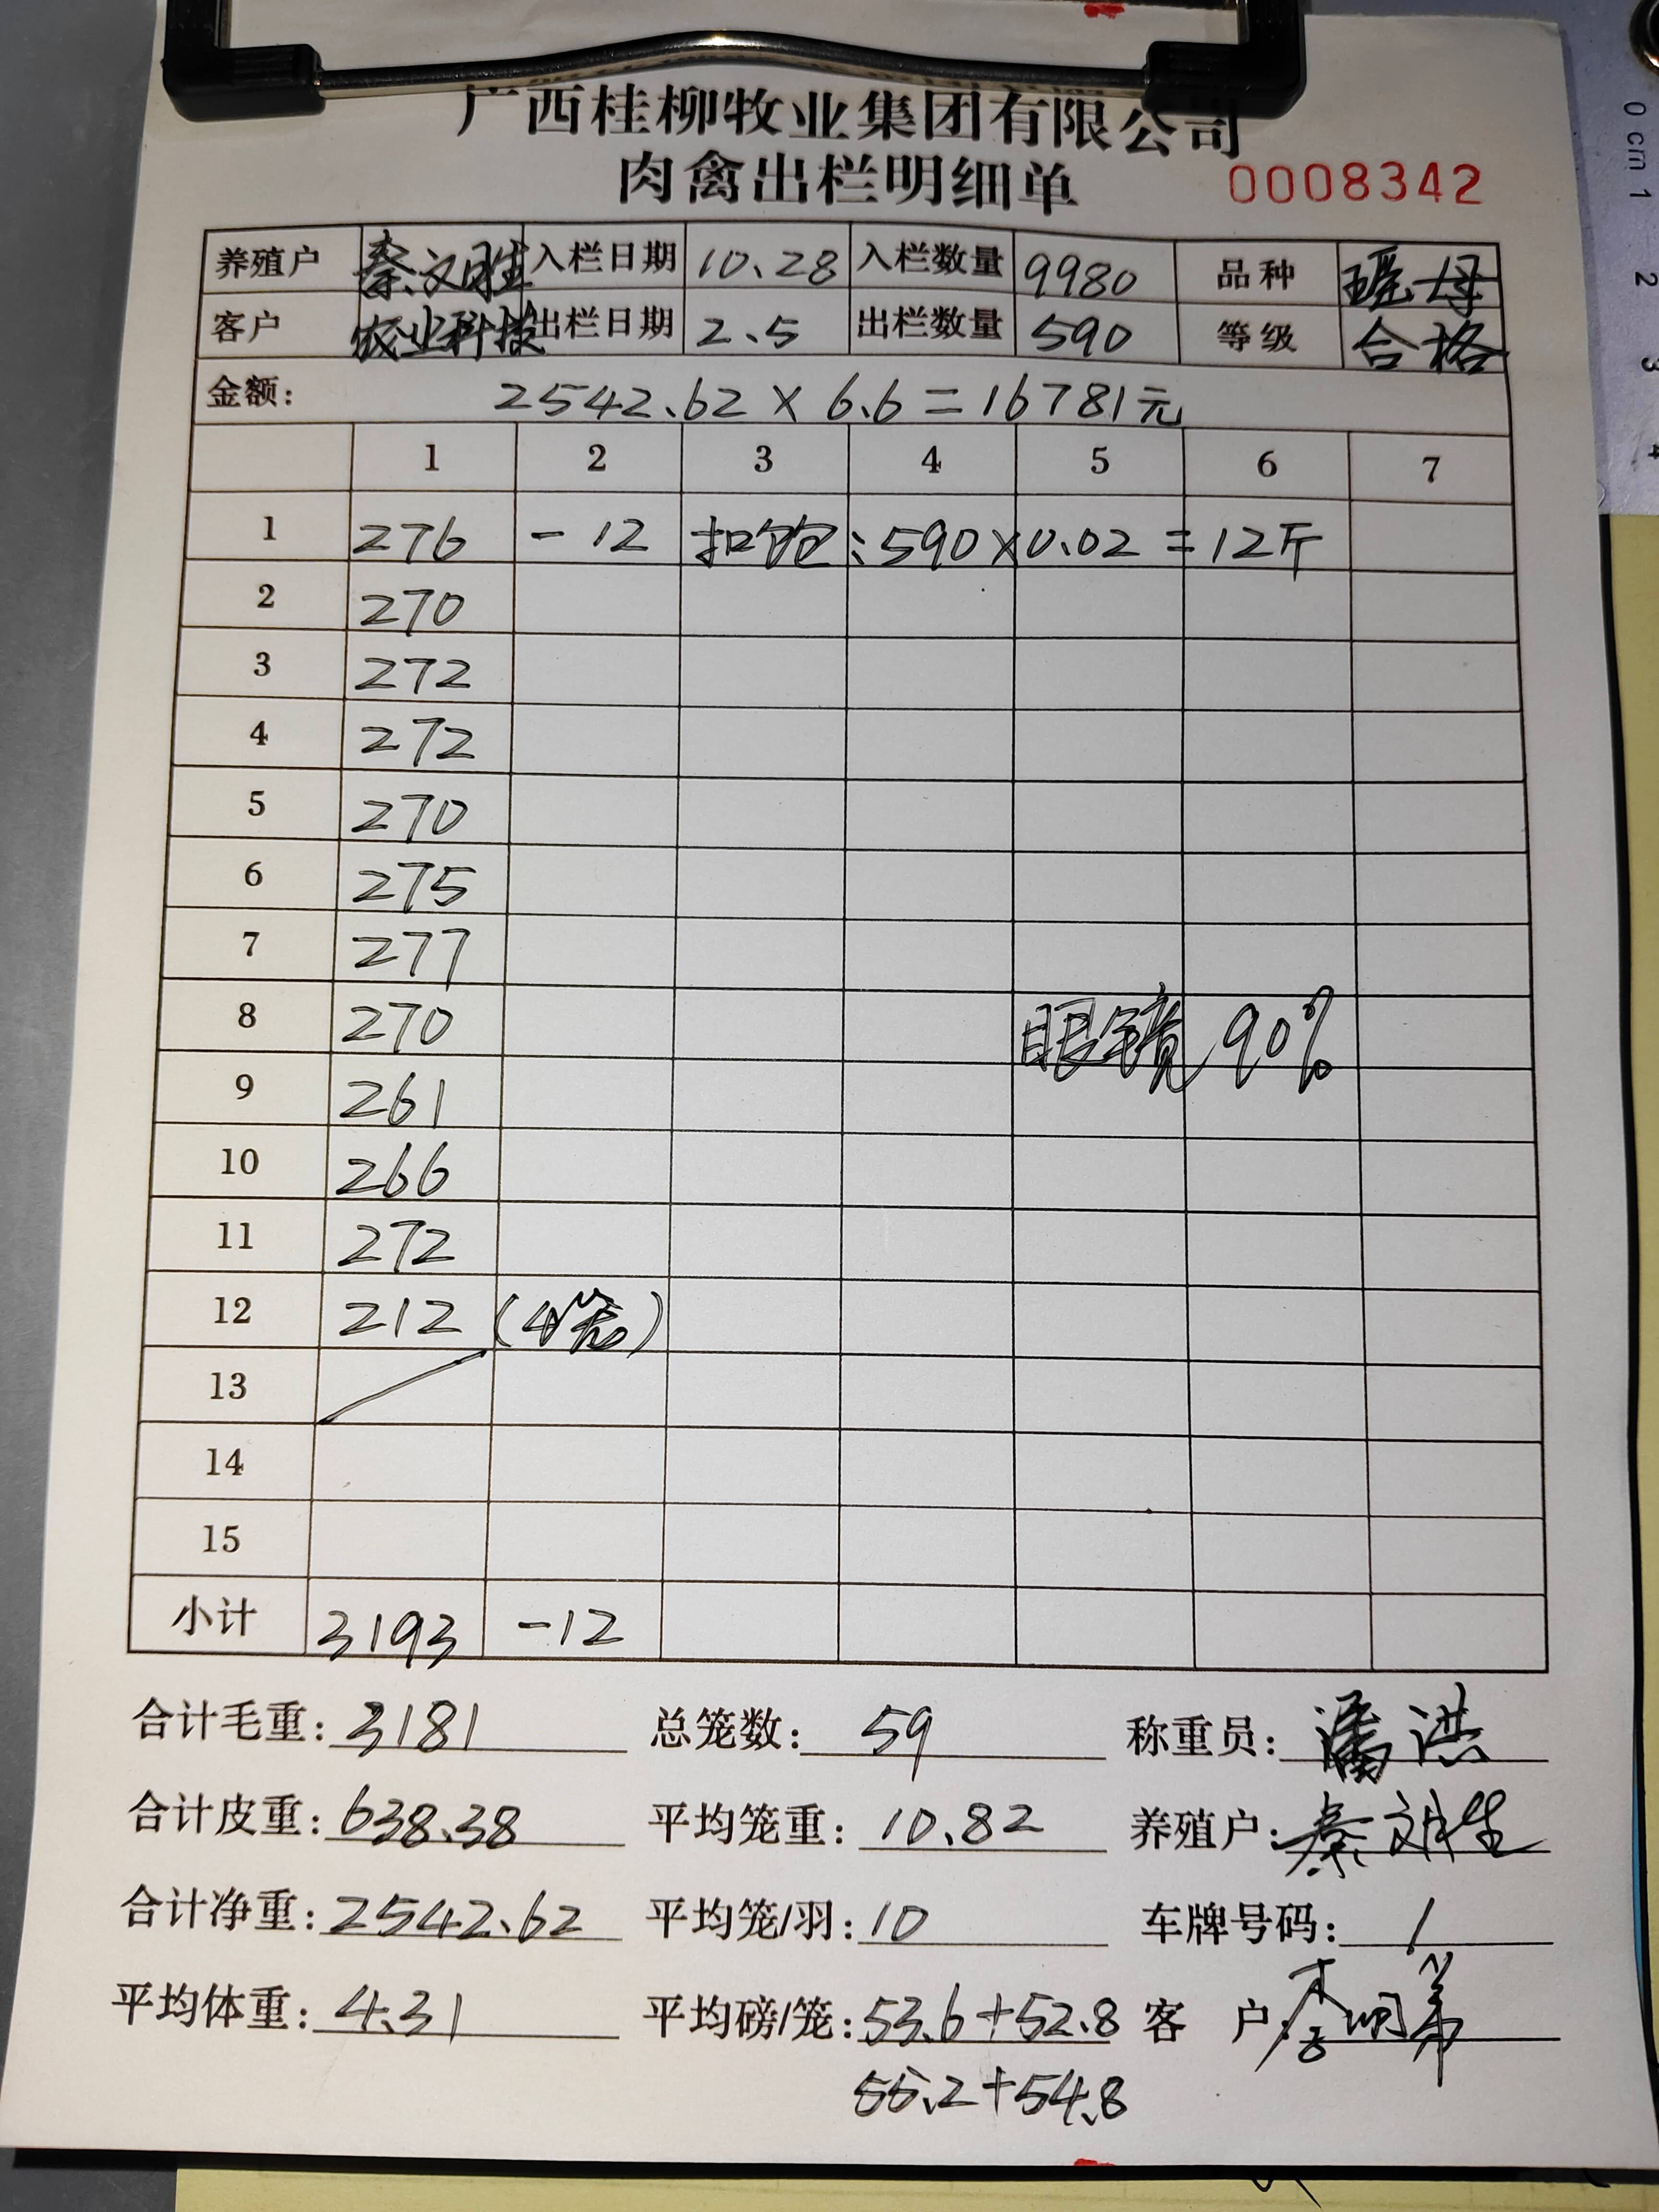 广西桂柳牧业集团有限公司
肉禽出栏明细单 0008342
养殖户 秦文胜 入栏日期 10.28 入栏数量 9980 品种 瑶母
客户 农业科技 出栏日期 2.5 出栏数量 590 等级 合格
金额: 2542.62 × 6.6 = 16781元
1 2 3 4 5 6 7
1 276 -12 扣饱:590×0.02=12斤
2 270
3 272
4 272
5 270
6 275
7 277
8 270 眼镜 90%
9 261
10 266
11 272
12 212 (4笼)
13
14
15
小计 3193 -12
合计毛重: 3181 总笼数: 59 称重员: 潘洪
合计皮重: 638.38 平均笼重: 10.82 养殖户: 秦文胜
合计净重: 2542.62 平均笼/羽: 10 车牌号码: /
平均体重: 4.31 平均磅/笼: 53.6+52.8 客 户:
55.2+54.8
0 cm 1 2 3 4